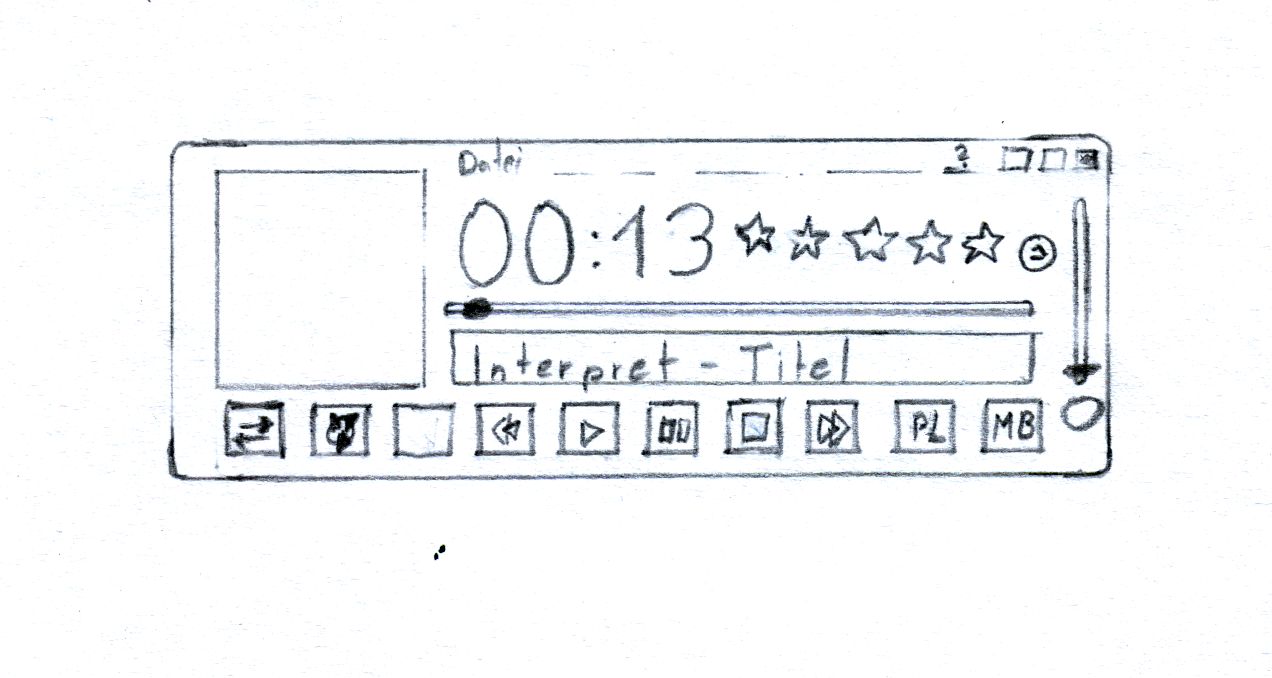 Datei ?
00:13
Interpret - Titel
PL MB